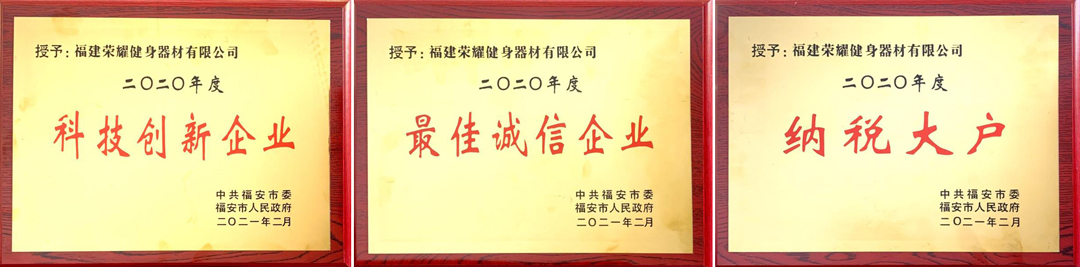 授予：福建荣耀健身器材有限公司
二〇二〇年度
科技创新企业
中共福安市委
福安市人民政府
二〇二一年二月
授予：福建荣耀健身器材有限公司
二〇二〇年度
最佳诚信企业
中共福安市委
福安市人民政府
二〇二一年二月
授予：福建荣耀健身器材有限公司
二〇二〇年度
纳税大户
中共福安市委
福安市人民政府
二〇二一年二月